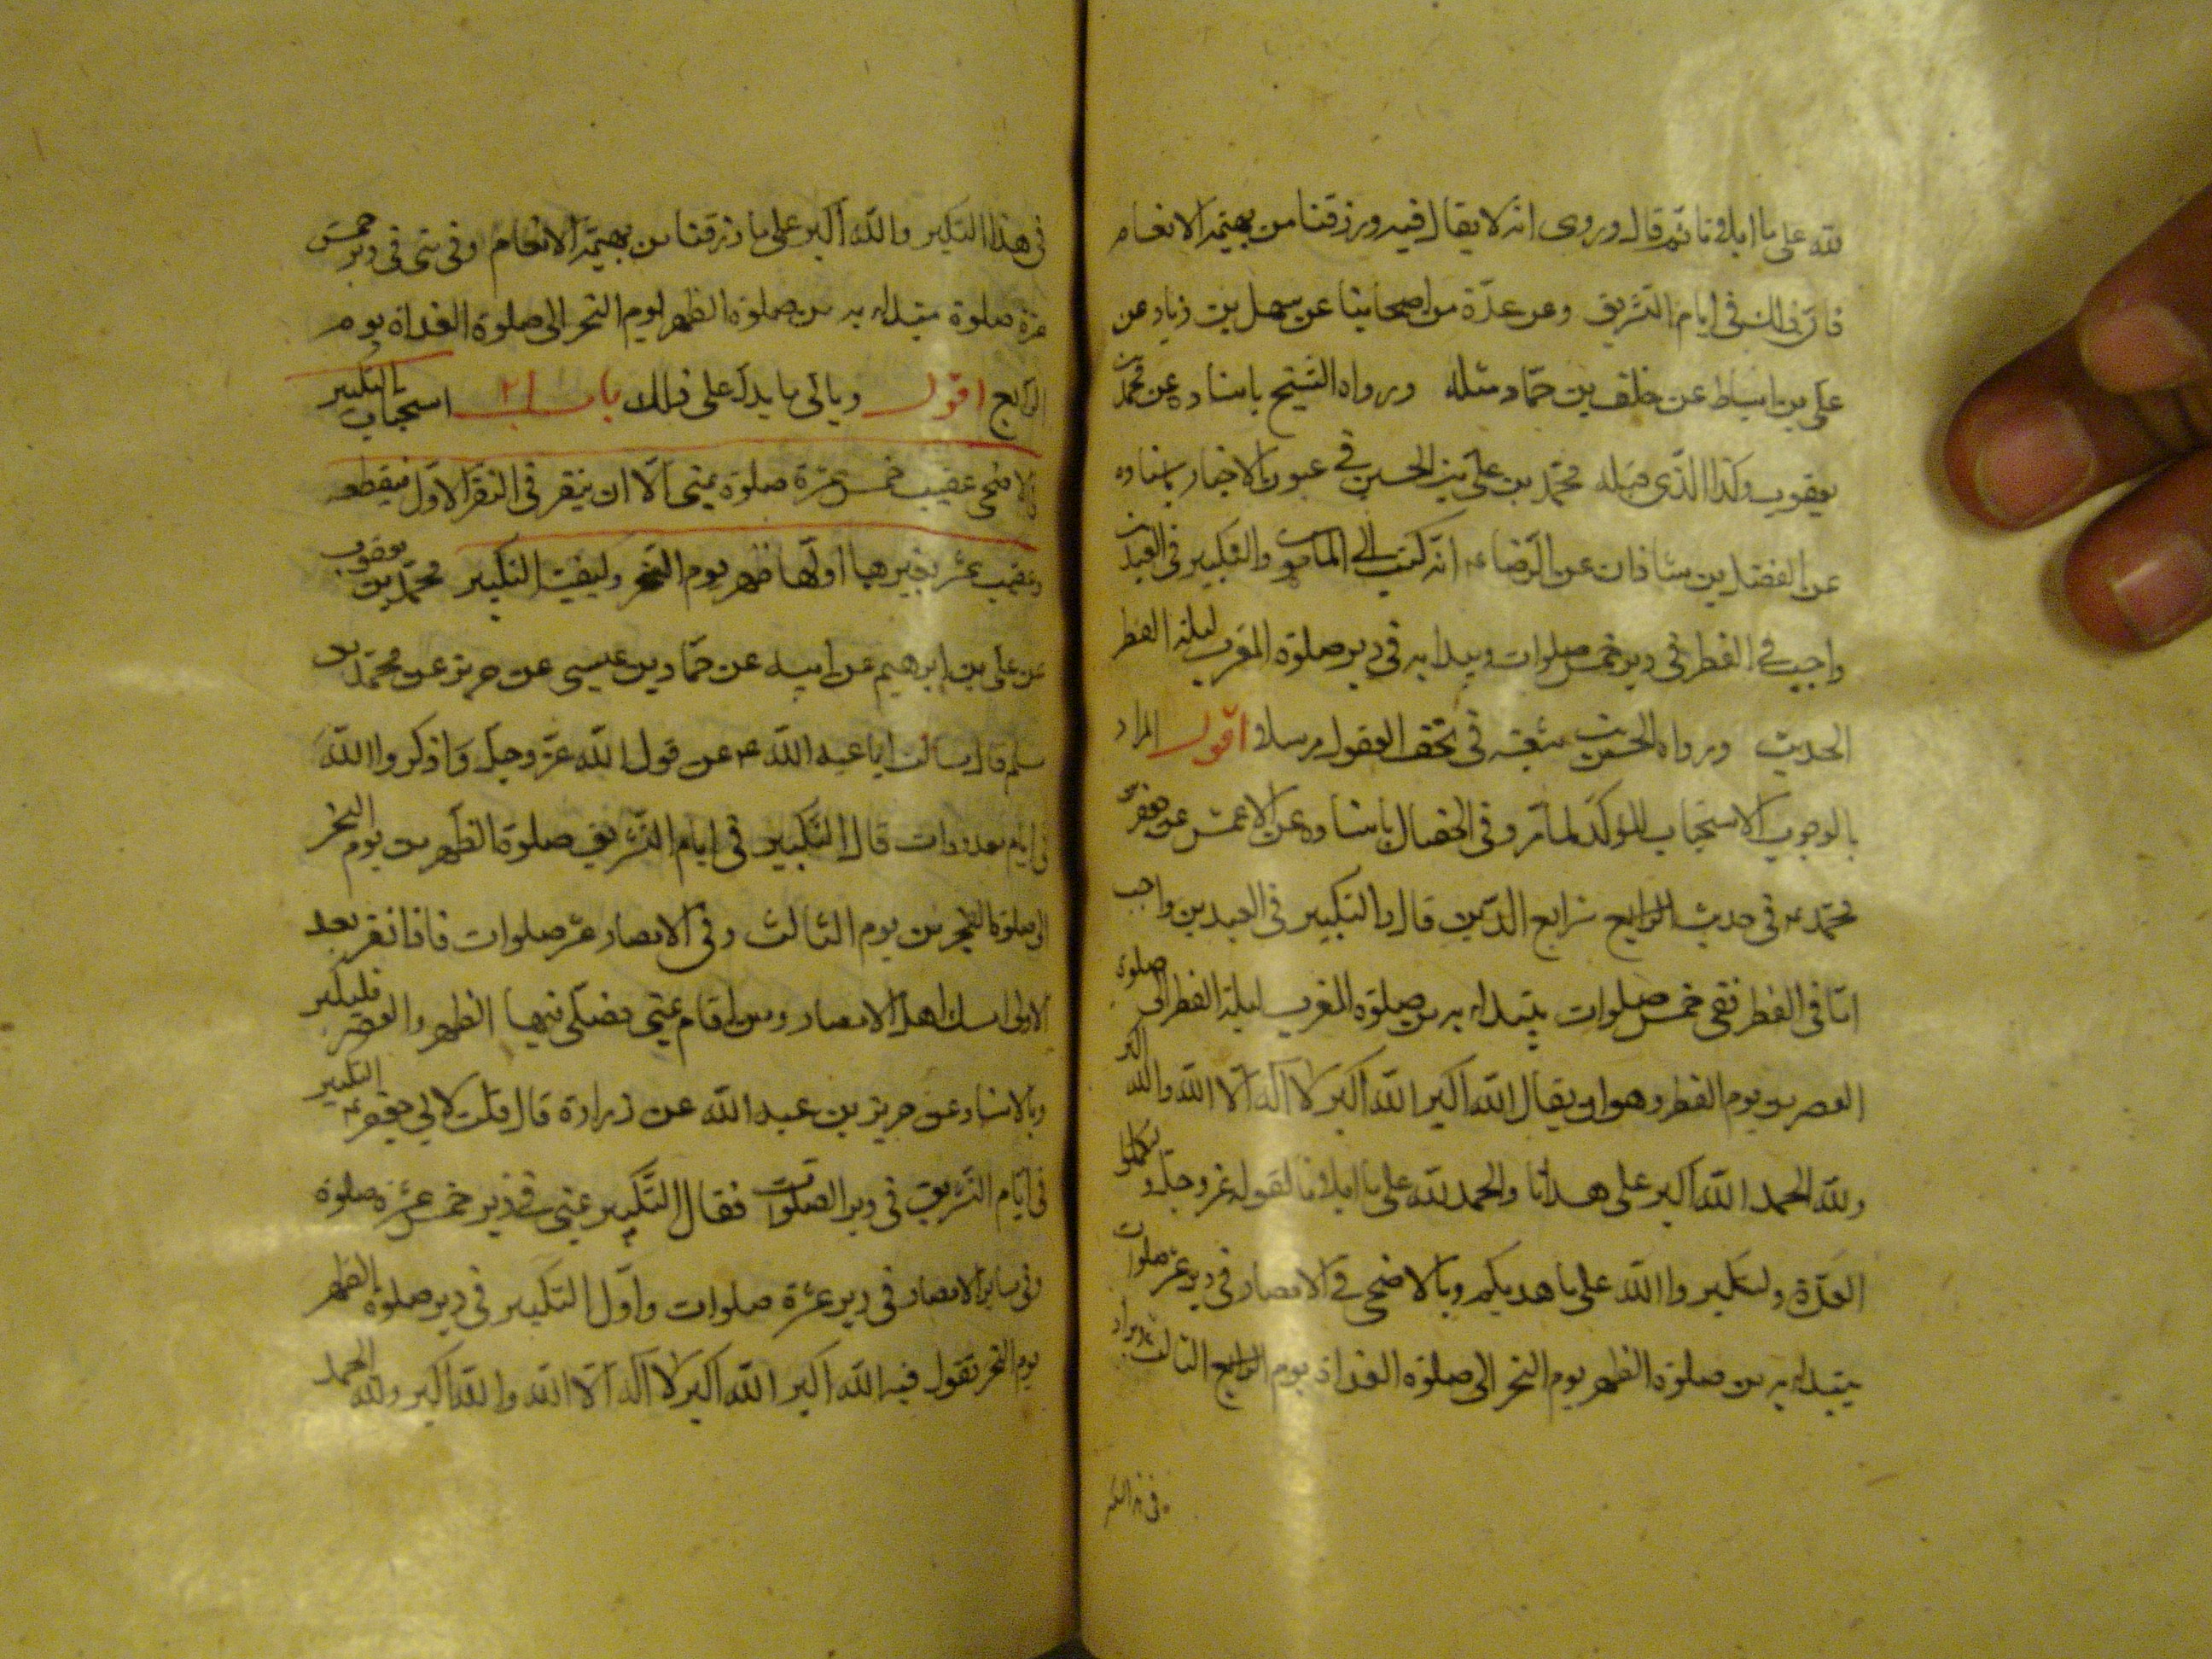 لله على ما ابلانا ثم قال وروى انه لا يقال فيه ورزقنا من بهيمة الانعام
فان ذلك فى ايام التشريق وعن عدة من اصحابنا عن سهل بن زياد عن
على بن اسباط عن خلف بن حماد مثله ورواه الشيخ باسناده عن محمد بن
يعقوب وكذا الذى قبله محمد بن على بن الحسين فى عيون الاخبار باسناده
عن الفضل بن شاذان عن الرضا ع انه كتب الى المامون والتكبير فى العيدين
واجب فى الفطر فى دبر خمس صلوات ويبدا به فى دبر صلوة المغرب ليلة الفطر
الحديث ورواه الحسن بن شعبة فى تحف العقول مرسلا اقول المراد
بالوجوب الاستحباب المؤكد لما مر وفى الخصال باسناده عن الاعمش عن جعفر بن
محمد ع فى حديث شرايع الدين قال والتكبير فى العيدين واجب
اما فى الفطر ففى خمس صلوات يبتدا به من صلوة المغرب ليلة الفطر الى صلوة
العصر من يوم الفطر وهو ان يقال الله اكبر الله اكبر لا اله الا الله والله اكبر
ولله الحمد الله اكبر على هدانا والحمد لله على ما ابلانا لقوله عز وجل ولتكملوا
العدة ولتكبروا الله على ما هديكم وبالاضحى فى الامصار فى دبر عشر صلوات
يبتدا به من صلوة الظهر يوم النحر الى صلوة الغداة يوم الثالث
فى هذا التكبير والله اكبر على ما رزقنا من بهيمة الانعام وفى منى فى دبر خمس
عشرة صلوة يبتدا به من صلوة الظهر يوم النحر الى صلوة الغداة يوم
الرابع اقول وياتى ما يدل على ذلك باب ٢١ استحباب التكبير
فى الاضحى عقيب خمس عشرة صلوة بمنى الا ان ينفر فى النفر الاول فيقطعه
وعقيب عشر بغيرها اولها ظهر يوم النحر وكيفية التكبير محمد بن يعقوب
عن على بن ابرهيم عن ابيه عن حماد بن عيسى عن حريز عن محمد بن
مسلم قال سالت ابا عبد الله ع عن قول الله عز وجل واذكروا الله
فى ايام معدودات قال التكبير فى ايام التشريق صلوة الظهر من يوم النحر
الى صلوة الفجر من يوم الثالث وفى الامصار عشر صلوات فاذا نفر بعد
الاولى امسك اهل الامصار ومن اقام بمنى فصلى فيها الظهر والعصر فليكبر
وبالاسناد عن حريز بن عبد الله عن زرارة قال قلت لابي جعفر ع التكبير
فى ايام التشريق فى دبر الصلوات فقال التكبير بمنى فى دبر خمس عشرة صلوة
وفى ساير الامصار فى دبر عشرة صلوات واول التكبير فى دبر صلوة الظهر
يوم النحر تقول فيه الله اكبر الله اكبر لا اله الا الله والله اكبر ولله الحمد